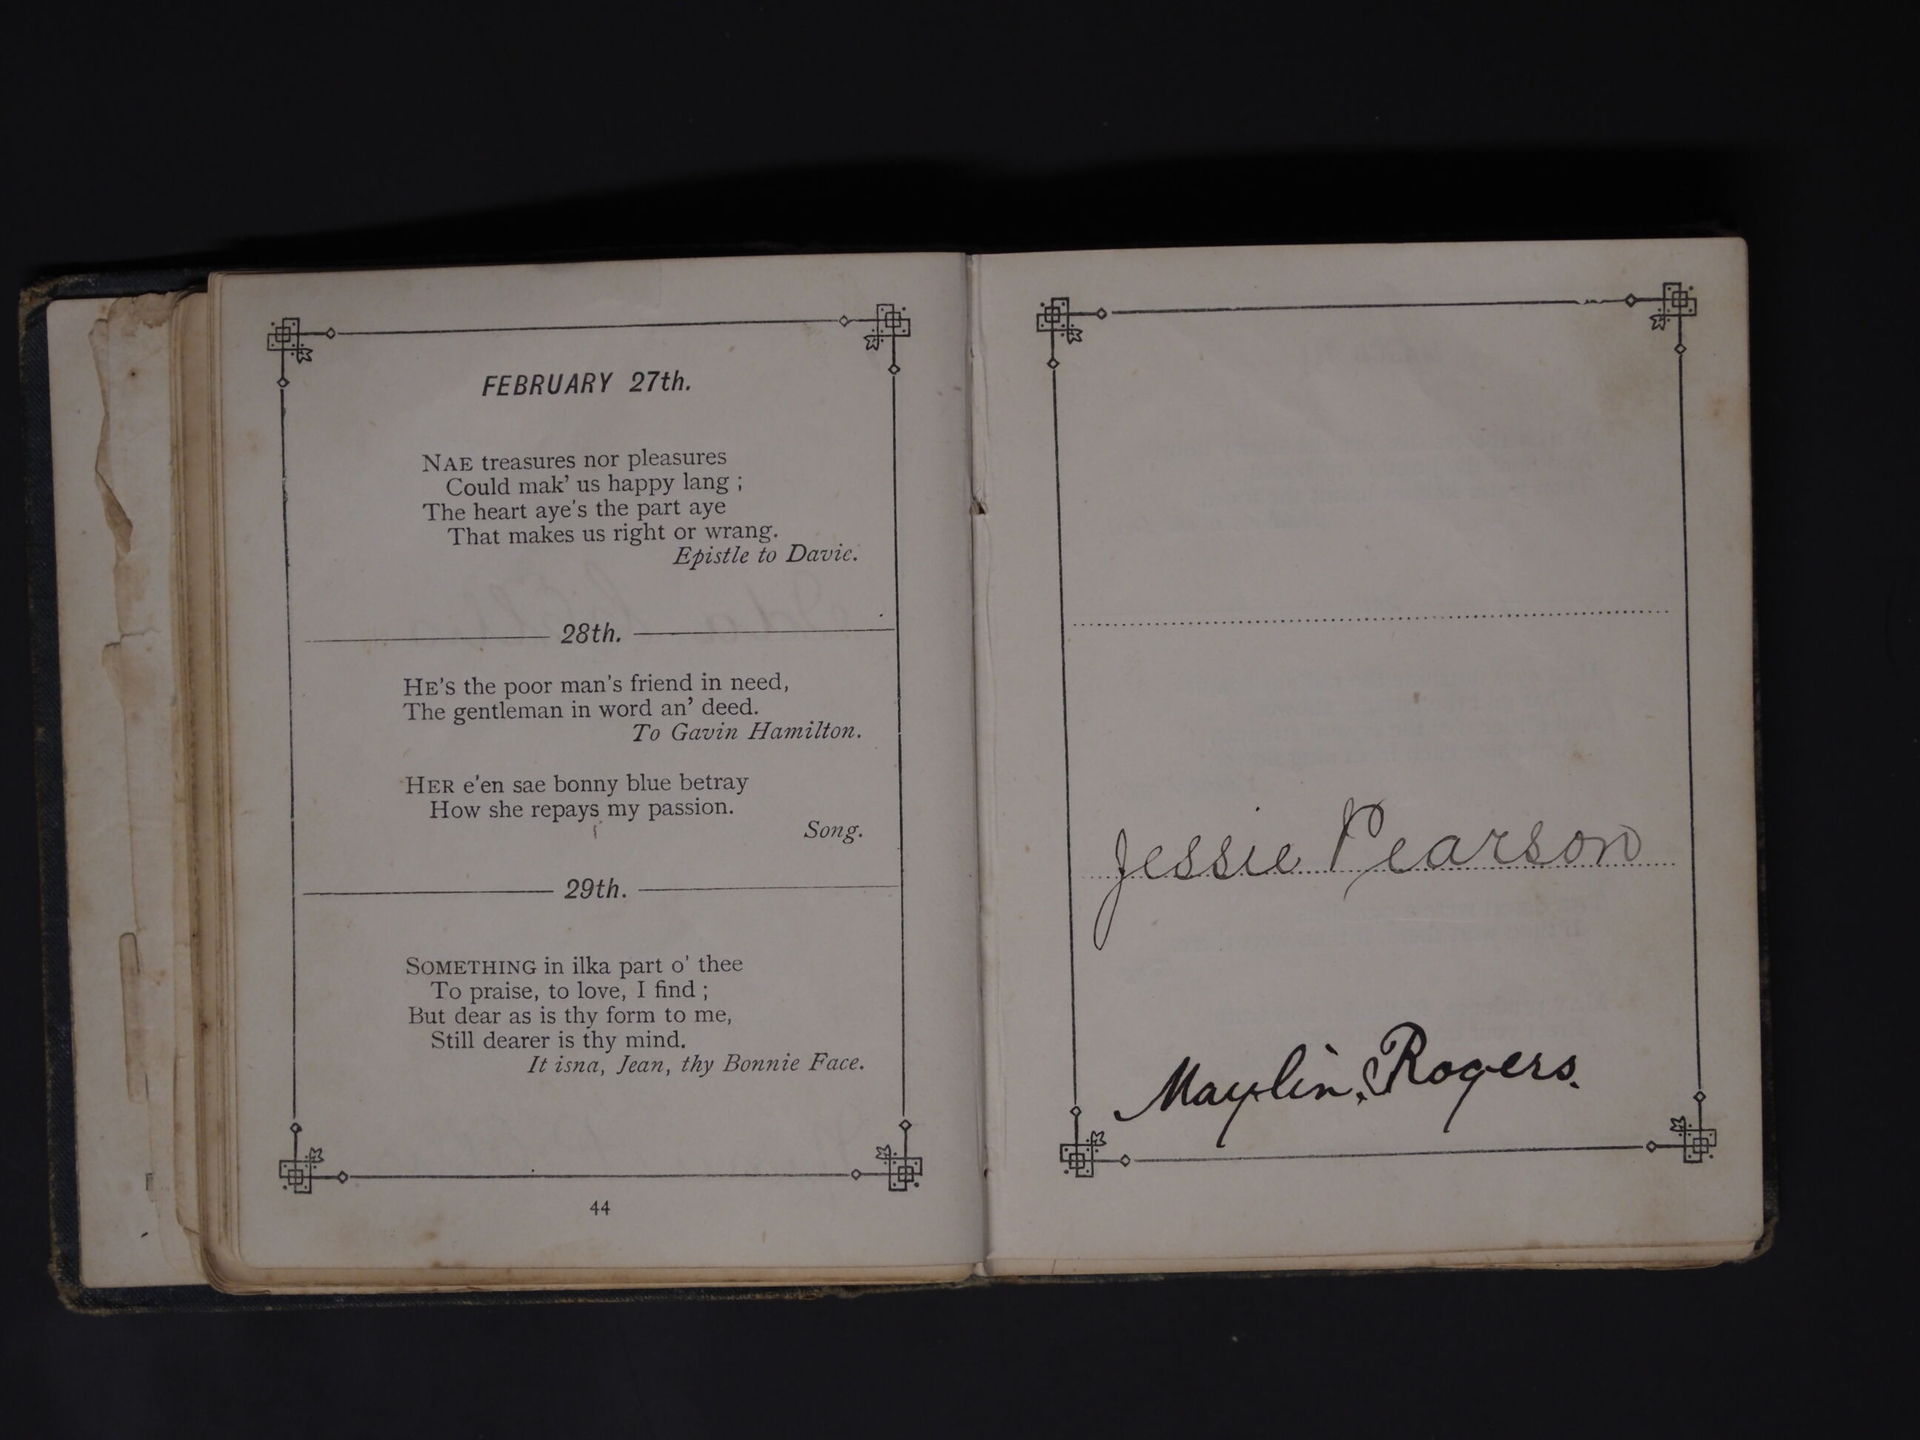 FEBRUARY 27th.
NAE treasures nor pleasures
Could mak' us happy lang ;
The heart aye's the part aye
That makes us right or wrang.
Epistle to Davie.
28th.
HE's the poor man's friend in need,
The gentleman in word an' deed.
To Gavin Hamilton.
HER e'en sae bonny blue betray
How she repays my passion.
Song.
29th.
SOMETHING in ilka part o' thee
To praise, to love, I find ;
But dear as is thy form to me,
Still dearer is thy mind.
It isna, Jean, thy Bonnie Face.
44
Jessie Pearson
Maylin. Rogers.